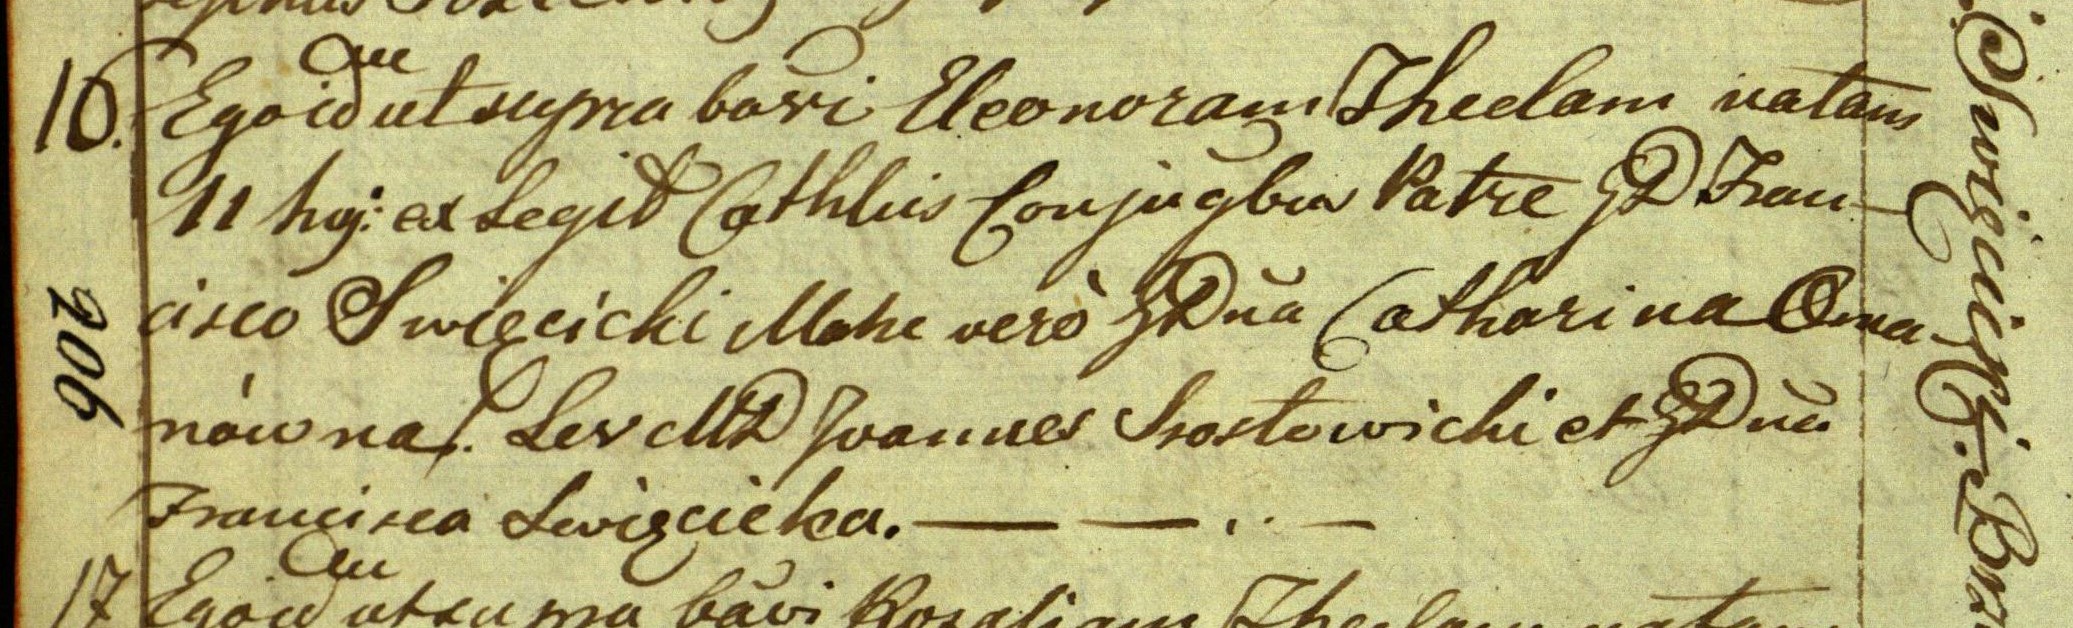 16. Ego id^em ut supra bavi Eleonoram Theclam natam
11 hoj: ex Legit Cathlis Conjugbus Patre GD Fran-
cisco Swięcicki Matre verò GDna Catharina Oma-
nówna. Les MD Joannes Szostowicki et GDna
Francisca Swięcicka. — — . . —
17 Ego id^em ut supra bavi Rosaliam Theclam natam
206
Swięcicki.